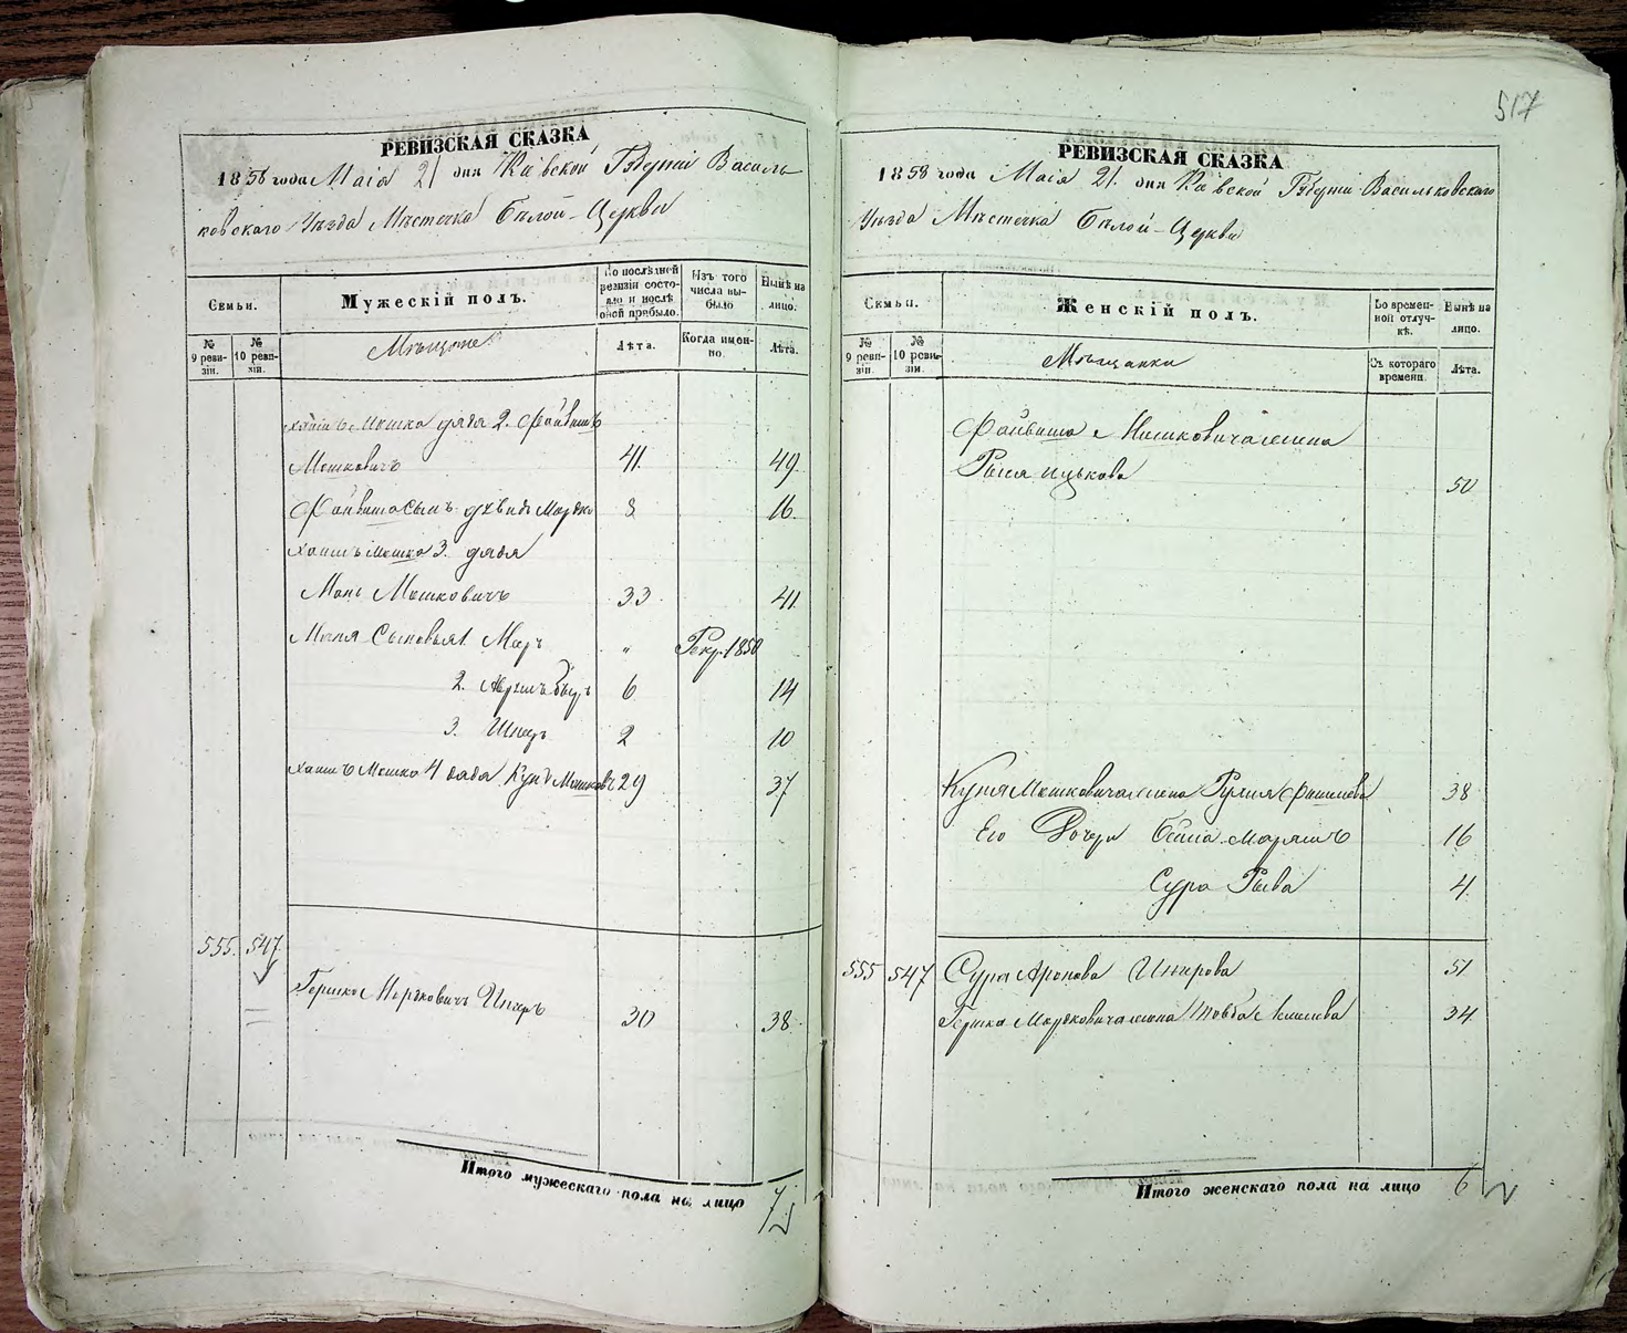 517
РЕВИЗСКАЯ СКАЗКА
1858 года Маія 21 дня Кіевской Губерніи Василь
ковскаго Уѣзда Мѣстечка Бѣлой-Церкви
Семьи.
Мужескій полъ.
По послѣдней ревизіи состояло и послѣ оной прибыло.
Изъ того числа выбыло
Нынѣ на лицо.
№ 9 ревизіи.
№ 10 ревизіи.
Мѣщане
Лѣта.
Когда именно.
Лѣта.
Хаимъ Мошка дядя 2. Файвишъ
Мошковичъ 41. 49.
Файвиша сынъ Дувидъ Мордко 8 16.
Хаимъ Мошка 3. дядя
Мошковичъ 33 41.
Сыновья 1. " Рекр. 1850
2. 6 14
3. 2 10
Хаимъ Мошка 4 дядя Мошков 29 37
555. 547.
Гершко Мордковичъ 30 38.
Итого мужескаго пола на лицо 7
РЕВИЗСКАЯ СКАЗКА
1858 года Маія 21. дня Кіевской Губерніи Васильковскаго
Уѣзда Мѣстечка Бѣлой-Церкви
Семьи.
Женскій полъ.
Во временной отлучкѣ.
Нынѣ на лицо.
№ 9 ревизіи.
№ 10 ревизіи.
Мѣщанки
Съ котораго времени.
Лѣта.
Файвиша Мошковича жена
Ицькова 50
Мошковича жена 38
Его Дочери 16
Сура Рыва 4.
555 547 Сура Аронова 51
Гершка Мордковича жена 34
Итого женскаго пола на лицо 6